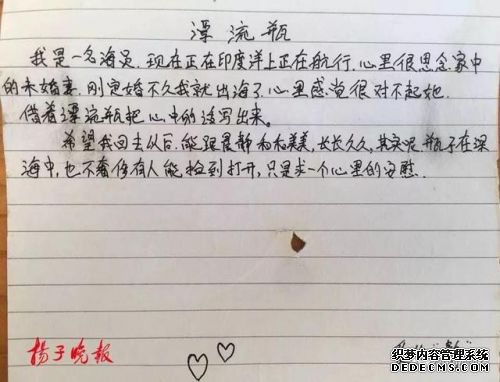 漂流瓶
我是一名海员,现在正在印度洋上正在航行,心里很思念家中
的未婚妻,刚定婚不久我就出海了,心里感觉很对不起她。
借着漂流瓶把心中的话写出来。
希望我回去以后,能跟晨静和和美美,长长久久,其实呢,瓶子在深
海中,也不奢侈有人能捡到打开,只是求一个心里的安慰.
扬子晚报
织梦内容管理系统
DEDECMS.COM